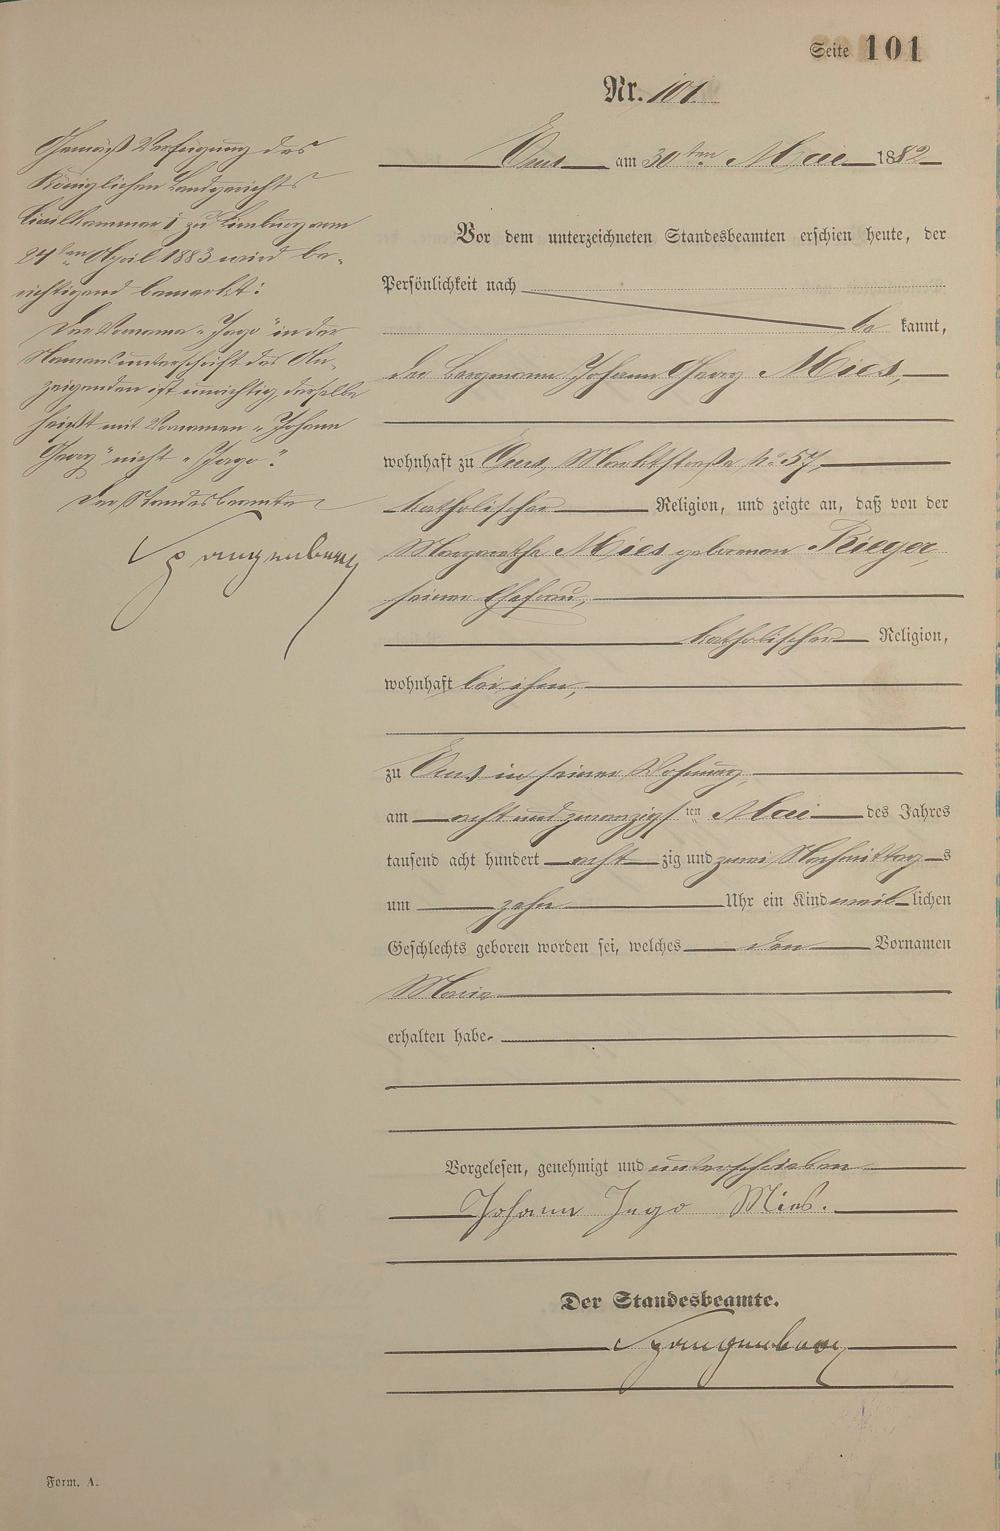 Seite 101
Nr. 101.
Ems am 30ten Mai 1882
Vor dem unterzeichneten Standesbeamten erschien heute, der
Persönlichkeit nach
be kannt,
der Bergmann Johann Georg Mies,
wohnhaft zu Ems, Marktstraße No 57,
katholischer Religion, und zeigte an, daß von der
Margaretha Mies geborenen Rieger,
seiner Ehefrau,
katholischer Religion,
wohnhaft bei ihm,
zu Ems in seiner Wohnung,
am acht und zwanzigsten Mai des Jahres
tausend acht hundert acht zig und zwei Nachmittags
um zehn Uhr ein Kind weiblichen
Geschlechts geboren worden sei, welches den Vornamen
Maria
erhalten habe.
Vorgelesen, genehmigt und unterschrieben
Johann Jago Mies.
Der Standesbeamte.
Spangenberg
Gemäß Verfügung des
Königlichen Landgerichts
Civilkammer I zu Limburg vom
24ten April 1883 wird be-
richtigend bemerkt:
Der Vorname „Jago" in der
Namensunterschrift des An-
zeigenden ist unrichtig, derselbe
heißt mit Vornamen „Johann
Georg" nicht „Jago".
Der Standesbeamte
Spangenberg
Form. A.